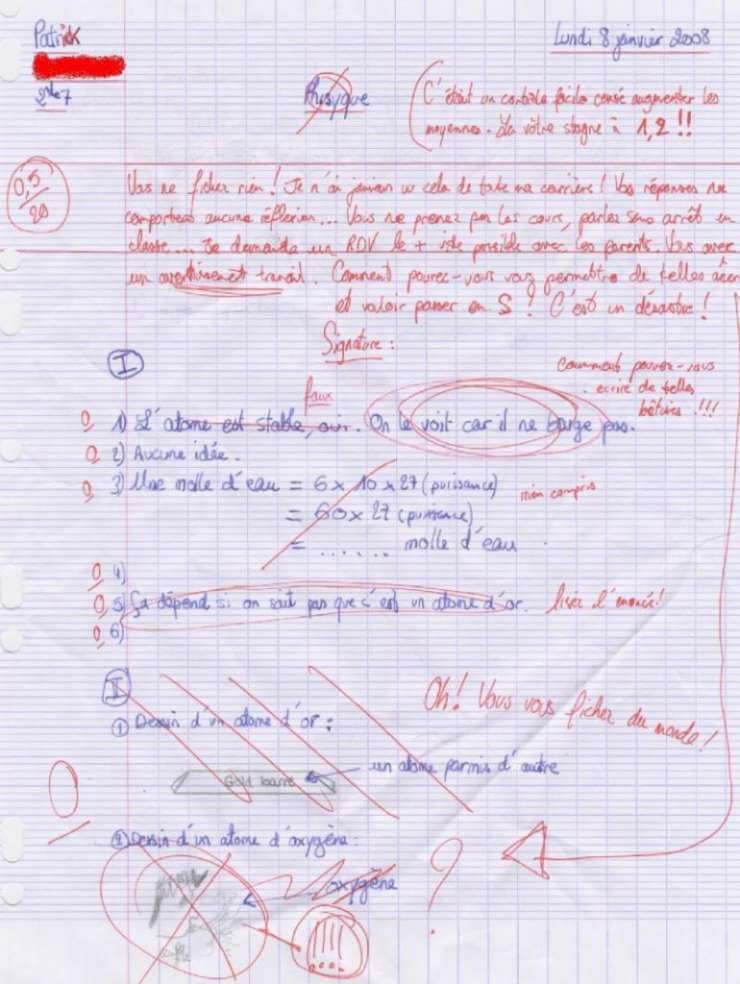 Patrick
Lundi 8 janvier 2008
2nde7
Physique
C'était un contrôle facile censé augmenter les
moyennes. La vôtre stagne à 1,2 !!
0,5
20
Vous ne fichez rien ! Je n'ai jamais vu cela de toute ma carrière ! Vos réponses ne
comportent aucune réflexion... Vous ne prenez pas les cours, parlez sans arrêt en
classe... Je demande un RDV le + vite possible avec les parents. Vous avez
un avertissement travail. Comment pouvez-vous vous permettre de telles
et valoir passer en S ? C'est un désastre !
Signature :
I
Comment pouvez-vous
écrire de telles
bêtises !!!
faux
0 1) L'atome est stable, oui. On le voit car il ne bouge pas.
0 2) Aucune idée.
0 3) Une molle d'eau = 6 x 10 x 27 (puissance) rien compris
= 60 x 27 (puissance)
= ...... molle d'eau
0 4)
0 5) Ça dépend si on sait pas que c'est un atome d'or. lisez l'énoncé!
0 6)
II
Oh! Vous vous fichez du monde !
① Dessin d'un atome d'or :
un atome parmis d'autre
Gold barre
0
② Dessin d'un atome d'oxygène :
oxygène
?
!!!!